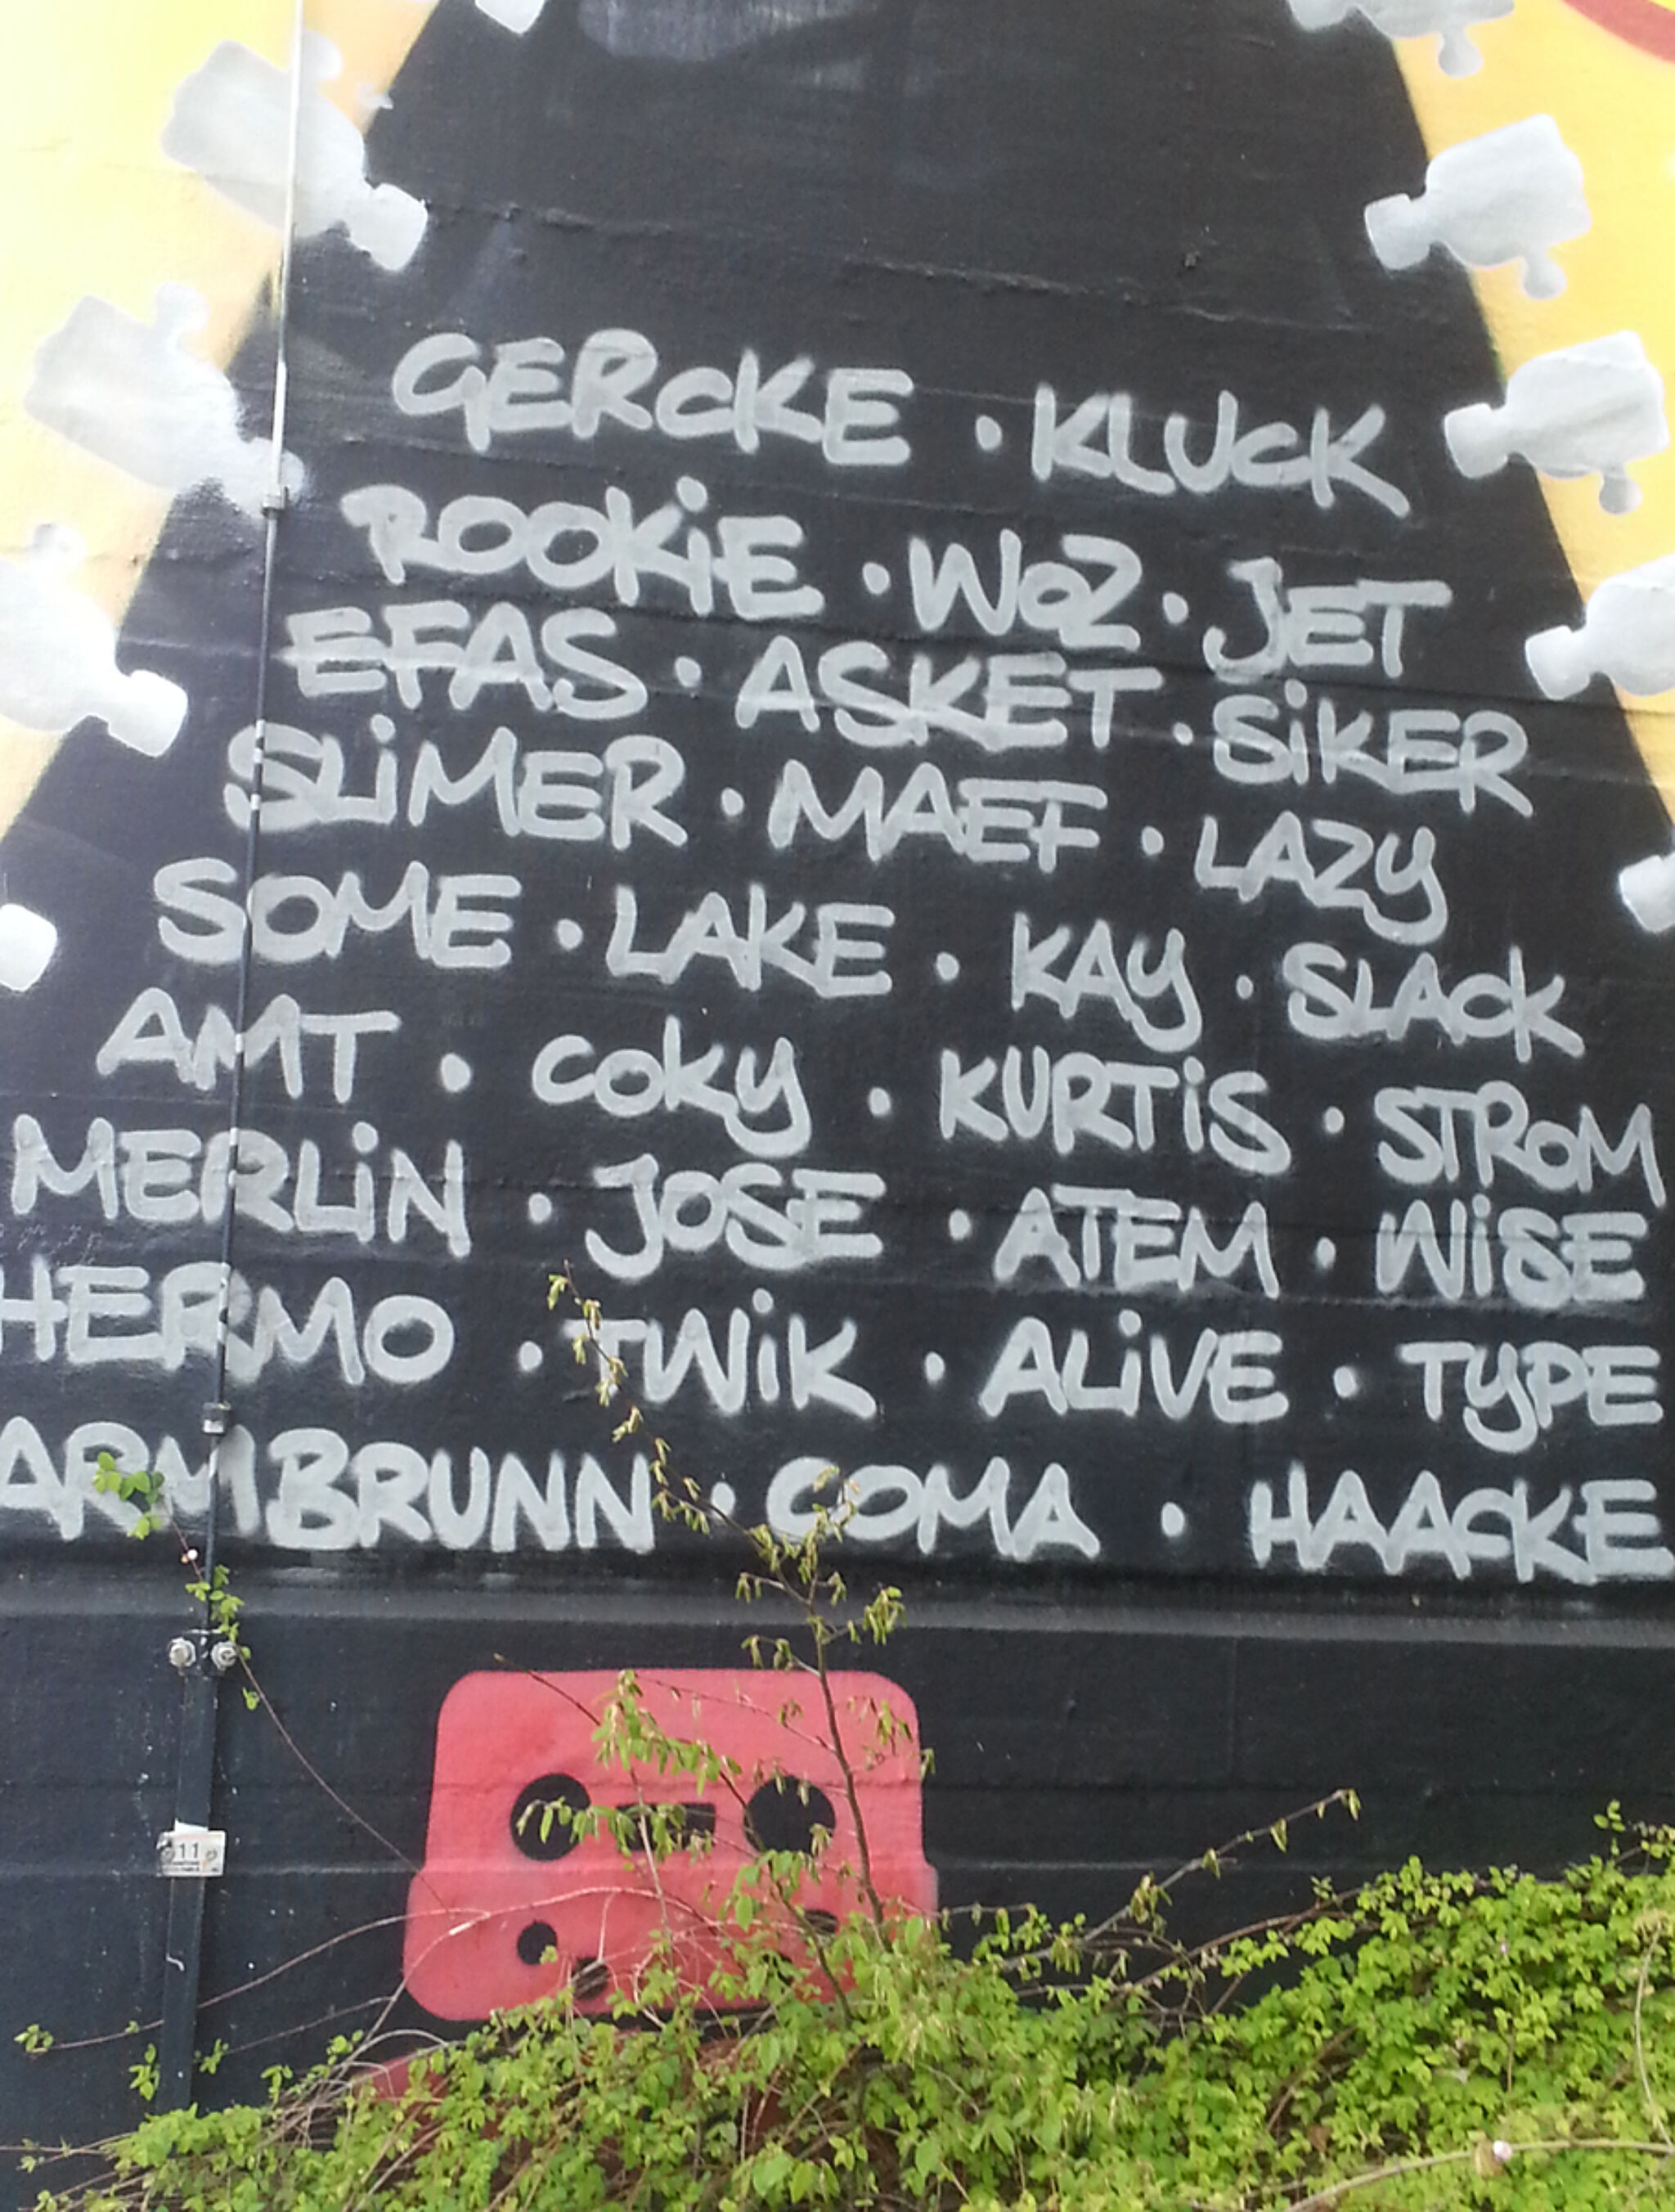 GERCKE · KLUCK
ROOKiE · WOZ · JET
EFAS · ASKET · SiKER
SLiMER · MAEF · LAZY
SOME · LAKE · KAY · SLACK
AMT · COKY · KURTiS · STROM
MERLiN · JOSE · ATEM · WiSE
HERMO · TWiK · ALiVE · TYPE
ARMBRUNN · COMA · HAACKE
11